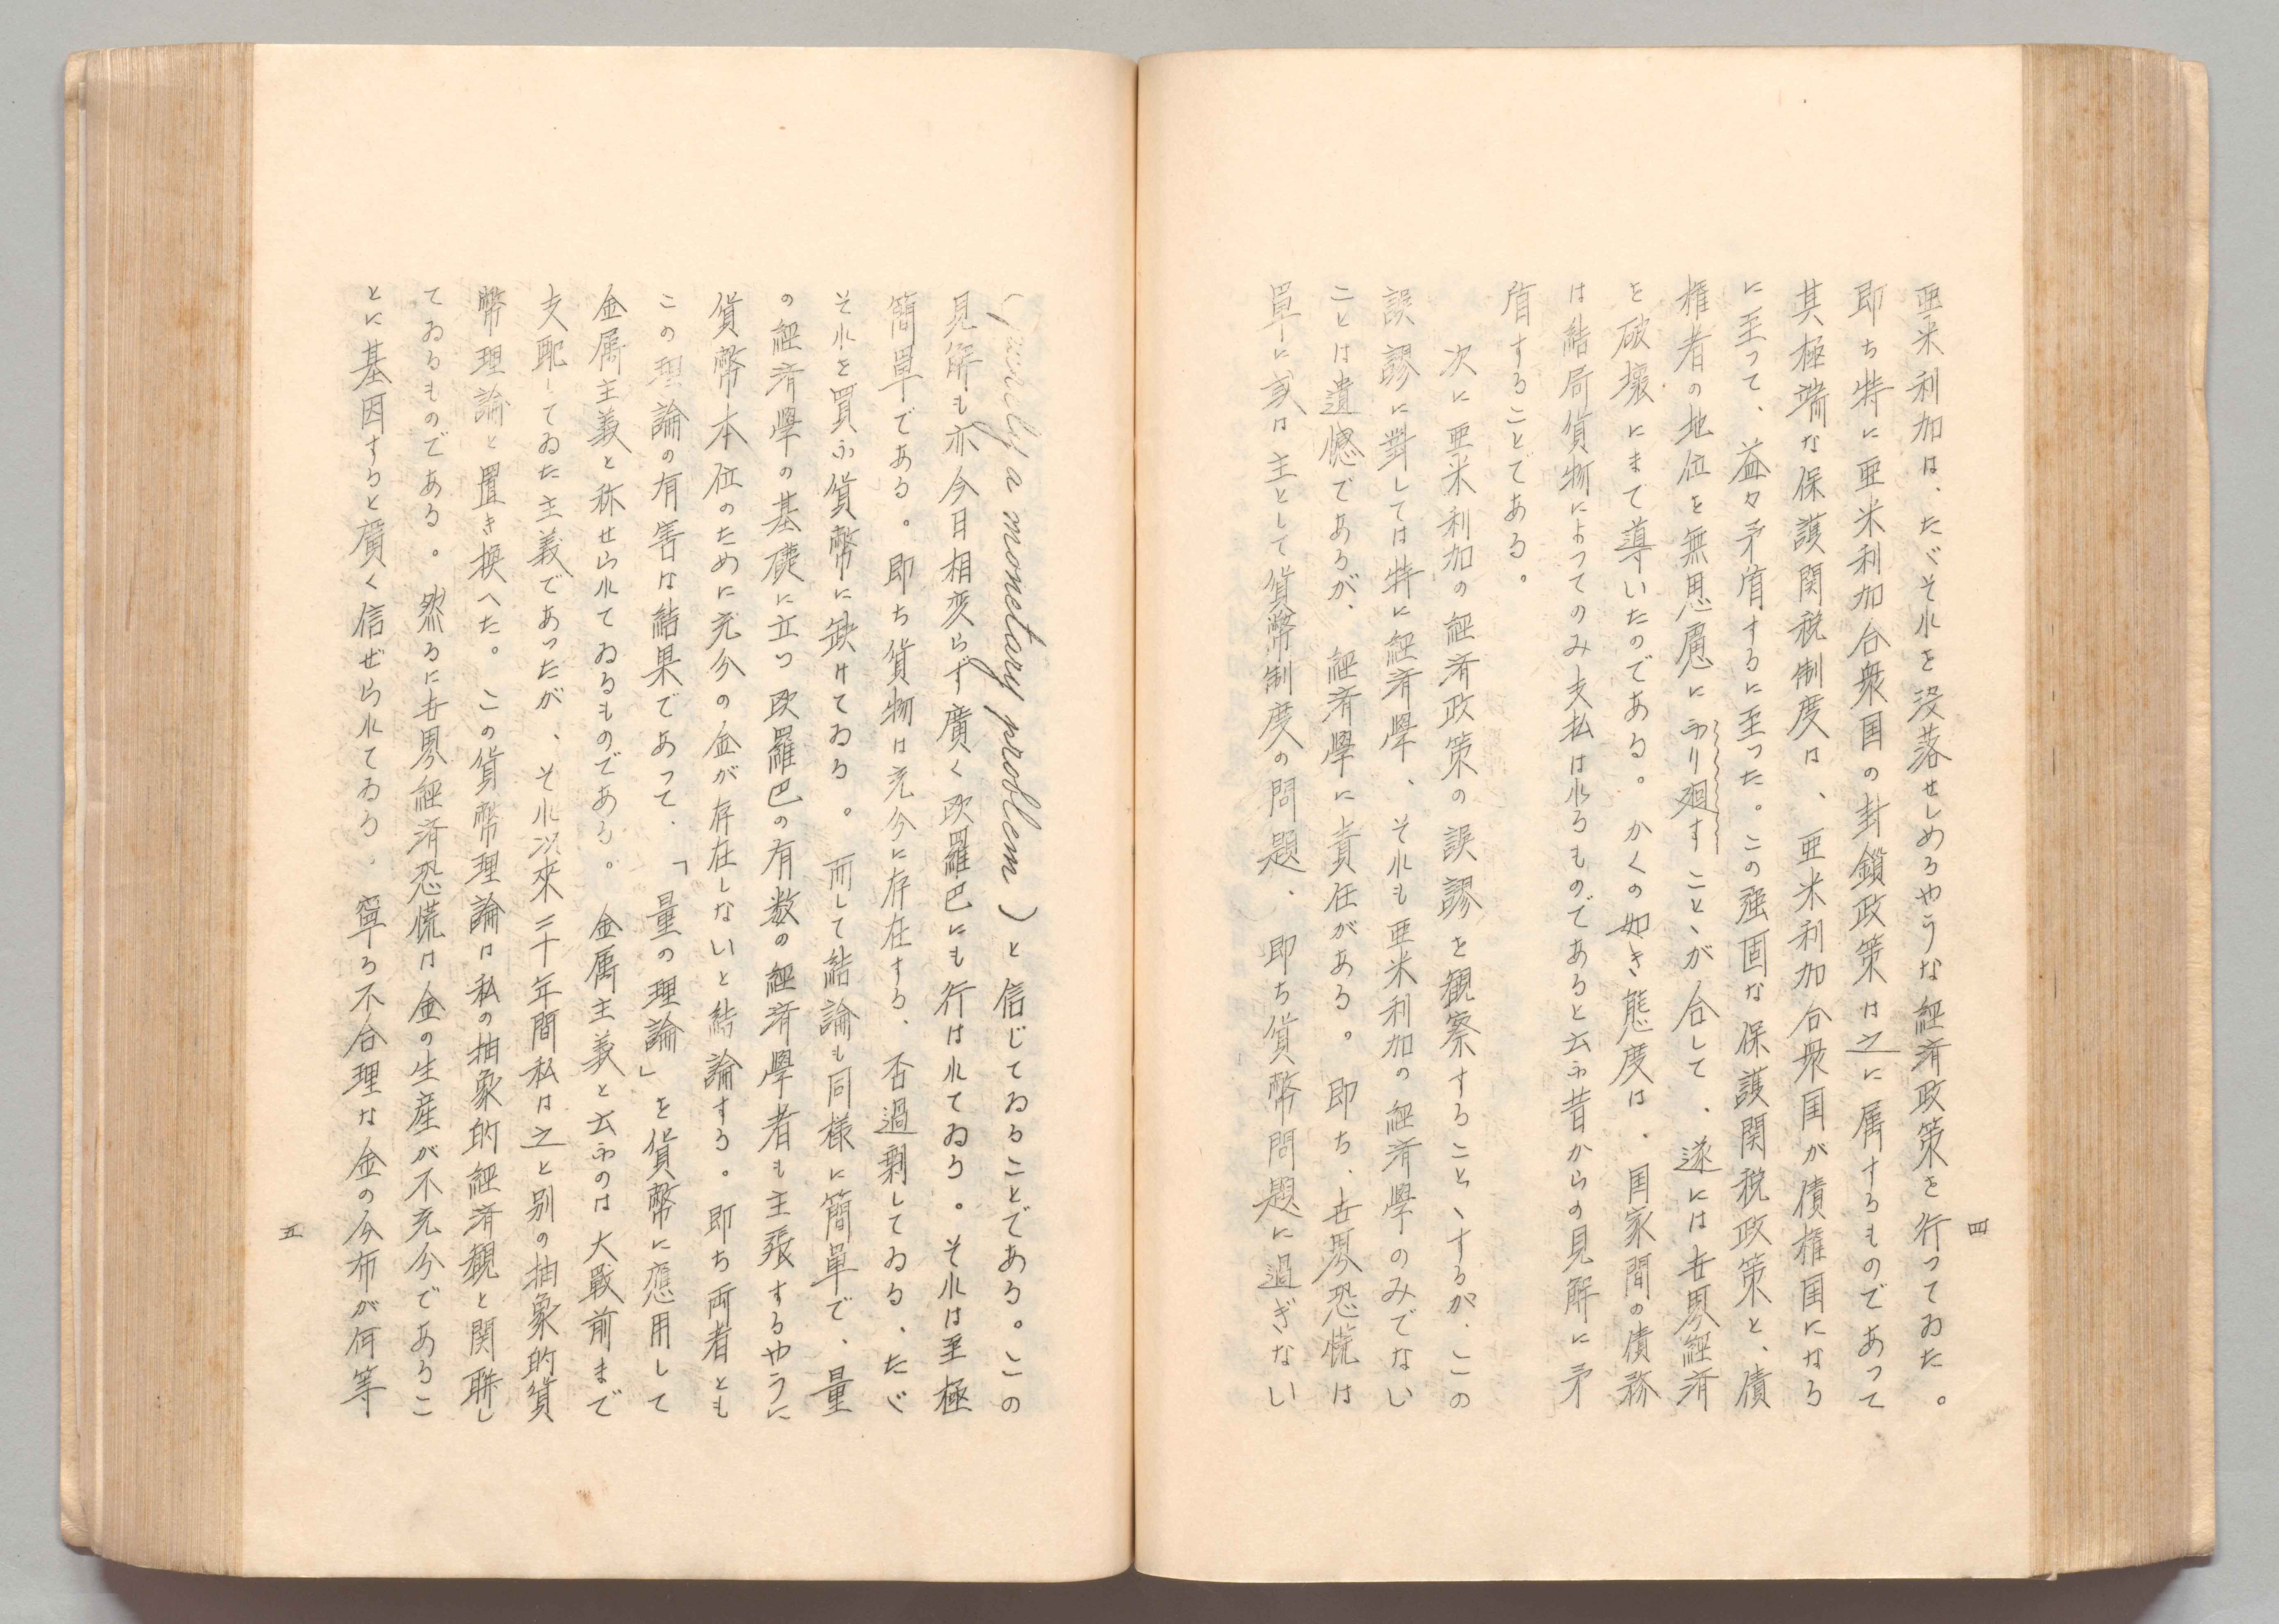 四
亜米利加は、たゞそれを没落せしめるやうな経済政策を行ってゐた。
即ち特に亜米利加合衆国の封鎖政策は之に属するものであって
其極端な保護関税制度は、亜米利加合衆国が債権国になる
に至って、益々矛盾するに至った。この強固な保護関税政策と、債
権者の地位を無思慮に振り廻すことゝが合して、遂には世界経済
を破壊にまで導いたのである。かくの如き態度は、国家間の債務
は結局貨物によってのみ支払はれるものであると云ふ昔からの見解に矛
盾することである。
次に亜米利加の経済政策の誤謬を観察することゝするが、この
誤謬に對しては特に経済學、それも亜米利加の経済學のみでない
ことは遺憾であるが、経済學に責任がある。即ち、世界恐慌は
単に或は主として貨幣制度の問題、即ち貨幣問題に過ぎない
(purely a monetary problem)と信じてゐることである。この
見解も亦今日相変らず廣く欧羅巴にも行はれてゐる。それは至極
簡単である。即ち貨物は充分に存在する、否過剰してゐる、たゞ
それを買ふ貨幣に缺けてゐる。而して結論も同様に簡単で、量
の経済學の基礎に立つ欧羅巴の有数の経済學者も主張するやうに
貨幣本位のために充分の金が存在しないと結論する。即ち両者とも
この理論の有害な結果であって、「量の理論」を貨幣に應用して
金属主義と称せられてゐるものである。金属主義と云ふのは大戰前まで
支配してゐた主義であったが、それ以來三十年間私は之と別の抽象的貨
幣理論と置き換へた。この貨幣理論は私の抽象的経済観と関聯し
てゐるものである。然るに世界経済恐慌は金の生産が不充分であるこ
とに基因すると廣く信ぜられてゐる、寧ろ不合理な金の分布が何等
五